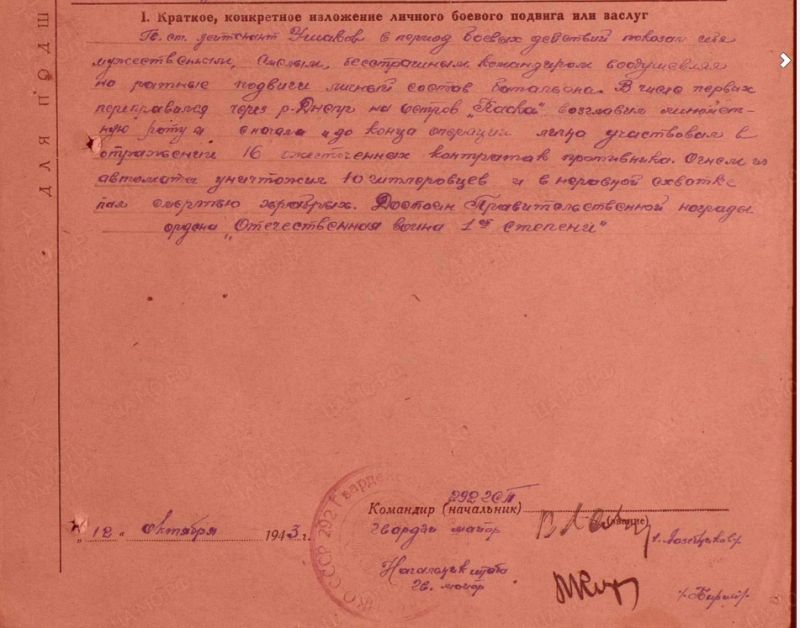 ДЛЯ ПОДШ
I. Краткое, конкретное изложение личного боевого подвига или заслуг
Гв. ст. лейтенант Ушаков в период боевых действий показал себя
мужественным, смелым, бесстрашным командиром воодушевляя
на ратные подвиги личный состав батальона. В числе первых
переправился через р. Днепр на остров „Пасква“ возглавил миномет-
ную роту и сначала и до конца операции лично участвовал в
отражении 16 ожесточенных контратак противника. Огнем из
автомата уничтожил 10 гитлеровцев и в неравной схватке
пал смертью храбрых. Достоин Правительственной награды
ордена „Отечественная война 1ой степени“
292 ГСП
Командир (начальник)
(звание)
„12“ Октября 1943 г.
Гвардии майор
Начальник штаба
Гв. майор